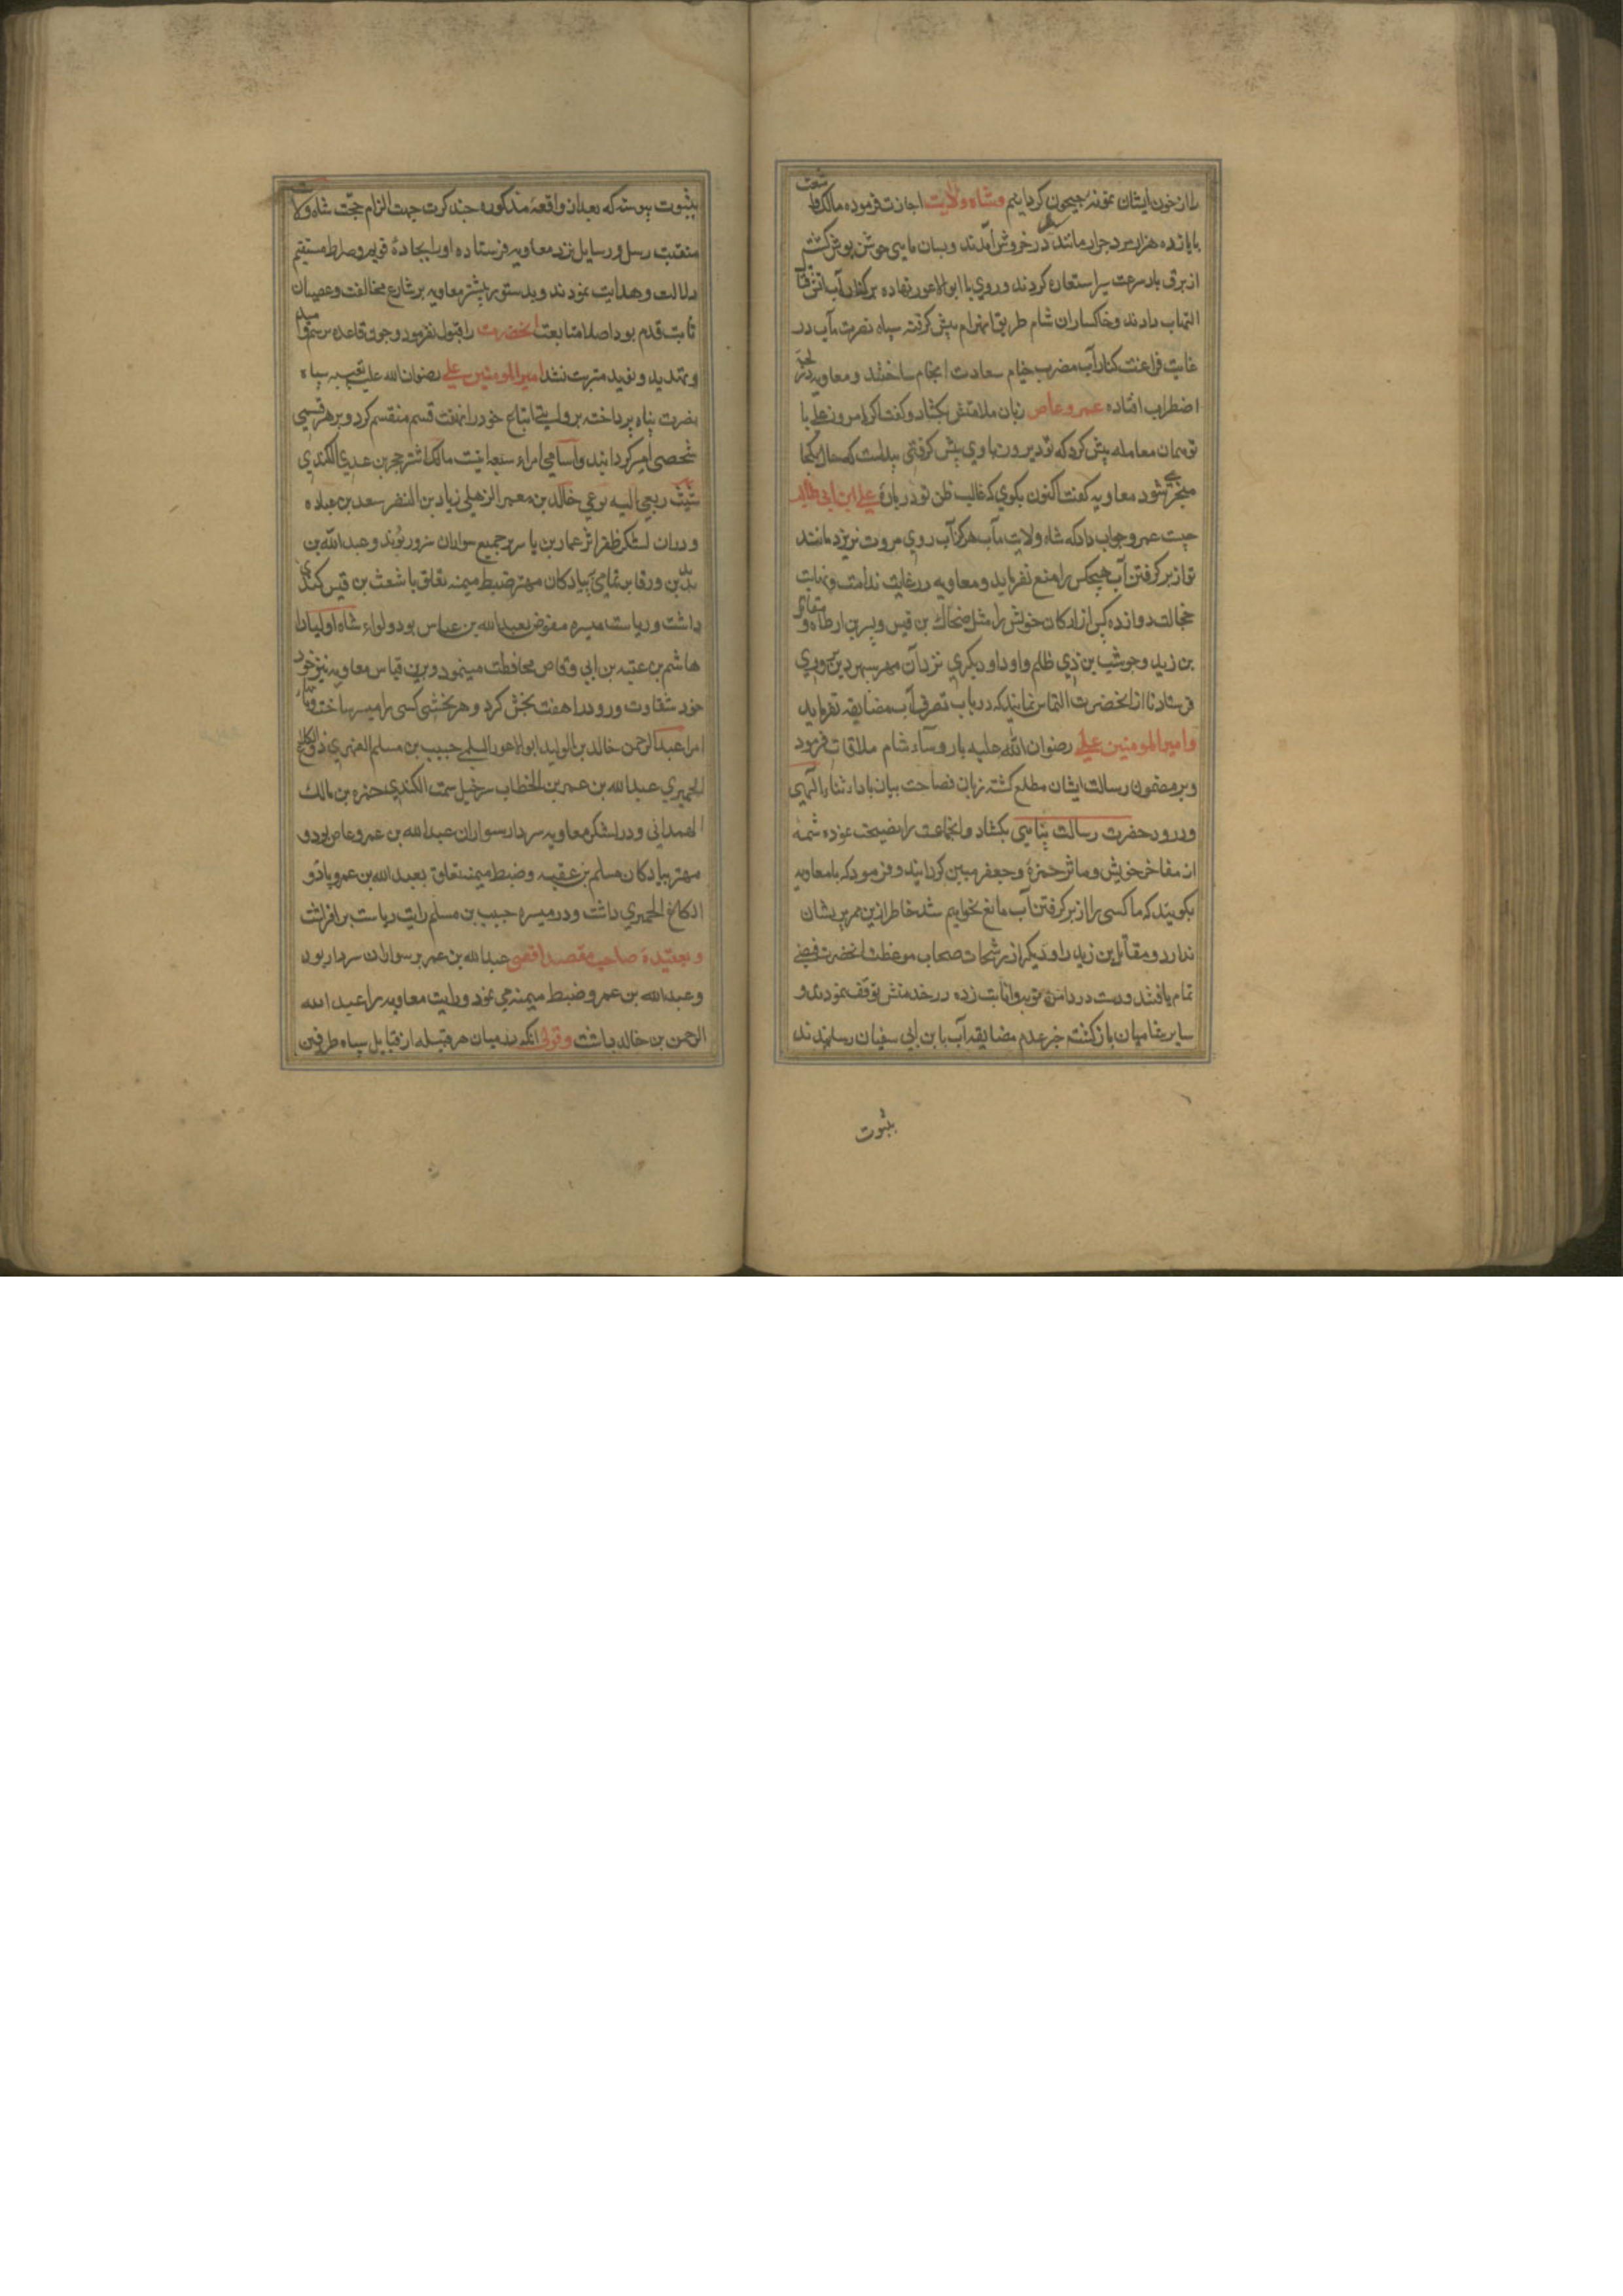 را از خون ایشان نمونهٔ جیحون کردانیم وشاه ولایت اجازت فرموده مالک
با پانزده هزار مرد جرار مانند در خروش آمدند وبسان ماهی جوشن پوش کشتہ
از برق باد سرعت سیر استعاره کردند و روی با ابوالاعور نهاده برکنار آب آتش
التهاب دادند وخاکساران شام طریق انهزام پیش کرفتہ سپاه نصرت مآب در
غایت فراغت کنار آب مضرب خیام سعادت انجام ساختند و معاویہ در
اضطراب افتاده عمروعاص زبان ملامتش بکشاد و کفت اکر امروز علی با
تو همان معامله پیش کرد که تو دیروز با وی پیش کرفتی پیداست که حال بکجا
منجر شود معاویه کفت اکنون بکوی که غالب ظن تو در بارهٔ علی ابن ابی طالب
چیست عمرو جواب داد که شاه ولایت مآب هرکز آب روی مروت نریزد مانند
تو از بر کرفتن آب هیچکس را منع نفرماید ومعاویه در غایت ندامت ونهایت
خجالت دوازده کس از ارکان خویش را مثل ضحاک بن قیس وبسر بن ارطاه و مقاتل
بن زید وحوشب بن ذی ظلم و اوداود دیکری نزد آن مهر سپهر دین پروری
فرستاد تا از انحضرت التماس نمایند که در باب تصرف آب مضایقه نفرماید
وامیرالمومنین علی رضوان الله علیه با رؤسآء شام ملاقات فرمود
وبر مضمون رسالت ایشان مطلع کشتہ زبان فصاحت بیان باداء ثناء الهی
ودرود حضرت رسالت پناهی بکشاد وانجماعت را نصیحت نموده شمهٔ
از مفاخر خویش ومآثر حمزة و جعفر مبین کردانید و فرمود که با معاویه
بکویید که ما کسی را از بر کرفتن آب مانع نخواهیم شد خاطر ازین ممر پریشان
ندارد و مقاتل بن زید را و دیکر از رشحات صحاب موعظت انحضرت فیضی
تمام یافتند ودست در دامن توبه وانابت زده در خدمتش توقف نمودند و
سایر شامیان باز کشتہ خبر عدم مضایقه آب با بن ابی سفیان رسانیدند
بثبوت
بثبوت پیوستہ که بعد از واقعهٔ مذکوره چند کرت جهت الزام حجت شاه ولایت
منقبت رسل و رسایل نزد معاویه فرستاده او را بجادهٔ قویم وصراط مستقیم
دلالت وهدایت نمودند وبدستور پیشتر معاویه بر شارع مخالفت وعصیان
ثابت قدم بود اصلا متابعت انحضرت را قبول نفرمود وچون قاعده
وتهدید و وعید مترتب نشد امیرالمومنین علی رضوان الله علیه بتعبیه سپاه
نصرت پناه پرداخته بروایتی اتباع خود را بهفت قسم منقسم کرد وبر هر قسمی
شخصی امیر کردانید واسامی امراء سبعه اینست مالک اشتر حجر بن عدی الکندی
شبث ربعی الیه بوعی خالد بن معمر الزهلی زیاد بن النضر سعد بن عباده
ودران لشکر ظفر اثر عمار بن یاسر بر جمیع سواران سرور بود وعبد الله بن
بدیل بن ورقا بر تمامی پیادکان مهتر ضبط میمنه تعلق باشعث بن قیس کندی
داشت وریاست میسره مفوض بعبد الله بن عباس بود ولواء شاه اولیا را
هاشم بن عتبه بن ابی وقاص محافظت مینمود وبرین قیاس معاویه نیز جنود
خود شقاوت ورود را هفت بخش کرد وهر بخشی کسی را میر ساخت
امرا عبد الرحمن خالد بن الولید ابوالاعور السلمی حبیب بن مسلم الفهری ذوالکلاع
الحمیری عبد الله بن عمر بن الخطاب سرخیل سمت الکندی حمزه بن مالک
الهمدانی ودر لشکر معاویه سردار سواران عبد الله بن عمرو عاص بود و
مهتر پیادکان مسلم بن عقبه وضبط میمنه تعلق بعبد الله بن عمرو یا ذو
الکلاع الحمیری داشت ودر میسره حبیب بن مسلم رایت ریاست برافراشت
وبعقیدهٔ صاحب مقصد اقصی عبد الله بن عمر بر سواران سردار بود
وعبد الله بن عمرو ضبط میمنه می نمود ورایت معاویه را عبد الله
الرحمن بن خالد داشت وقولی انکه در میان هر قبیله از قبایل سپاه طرفین